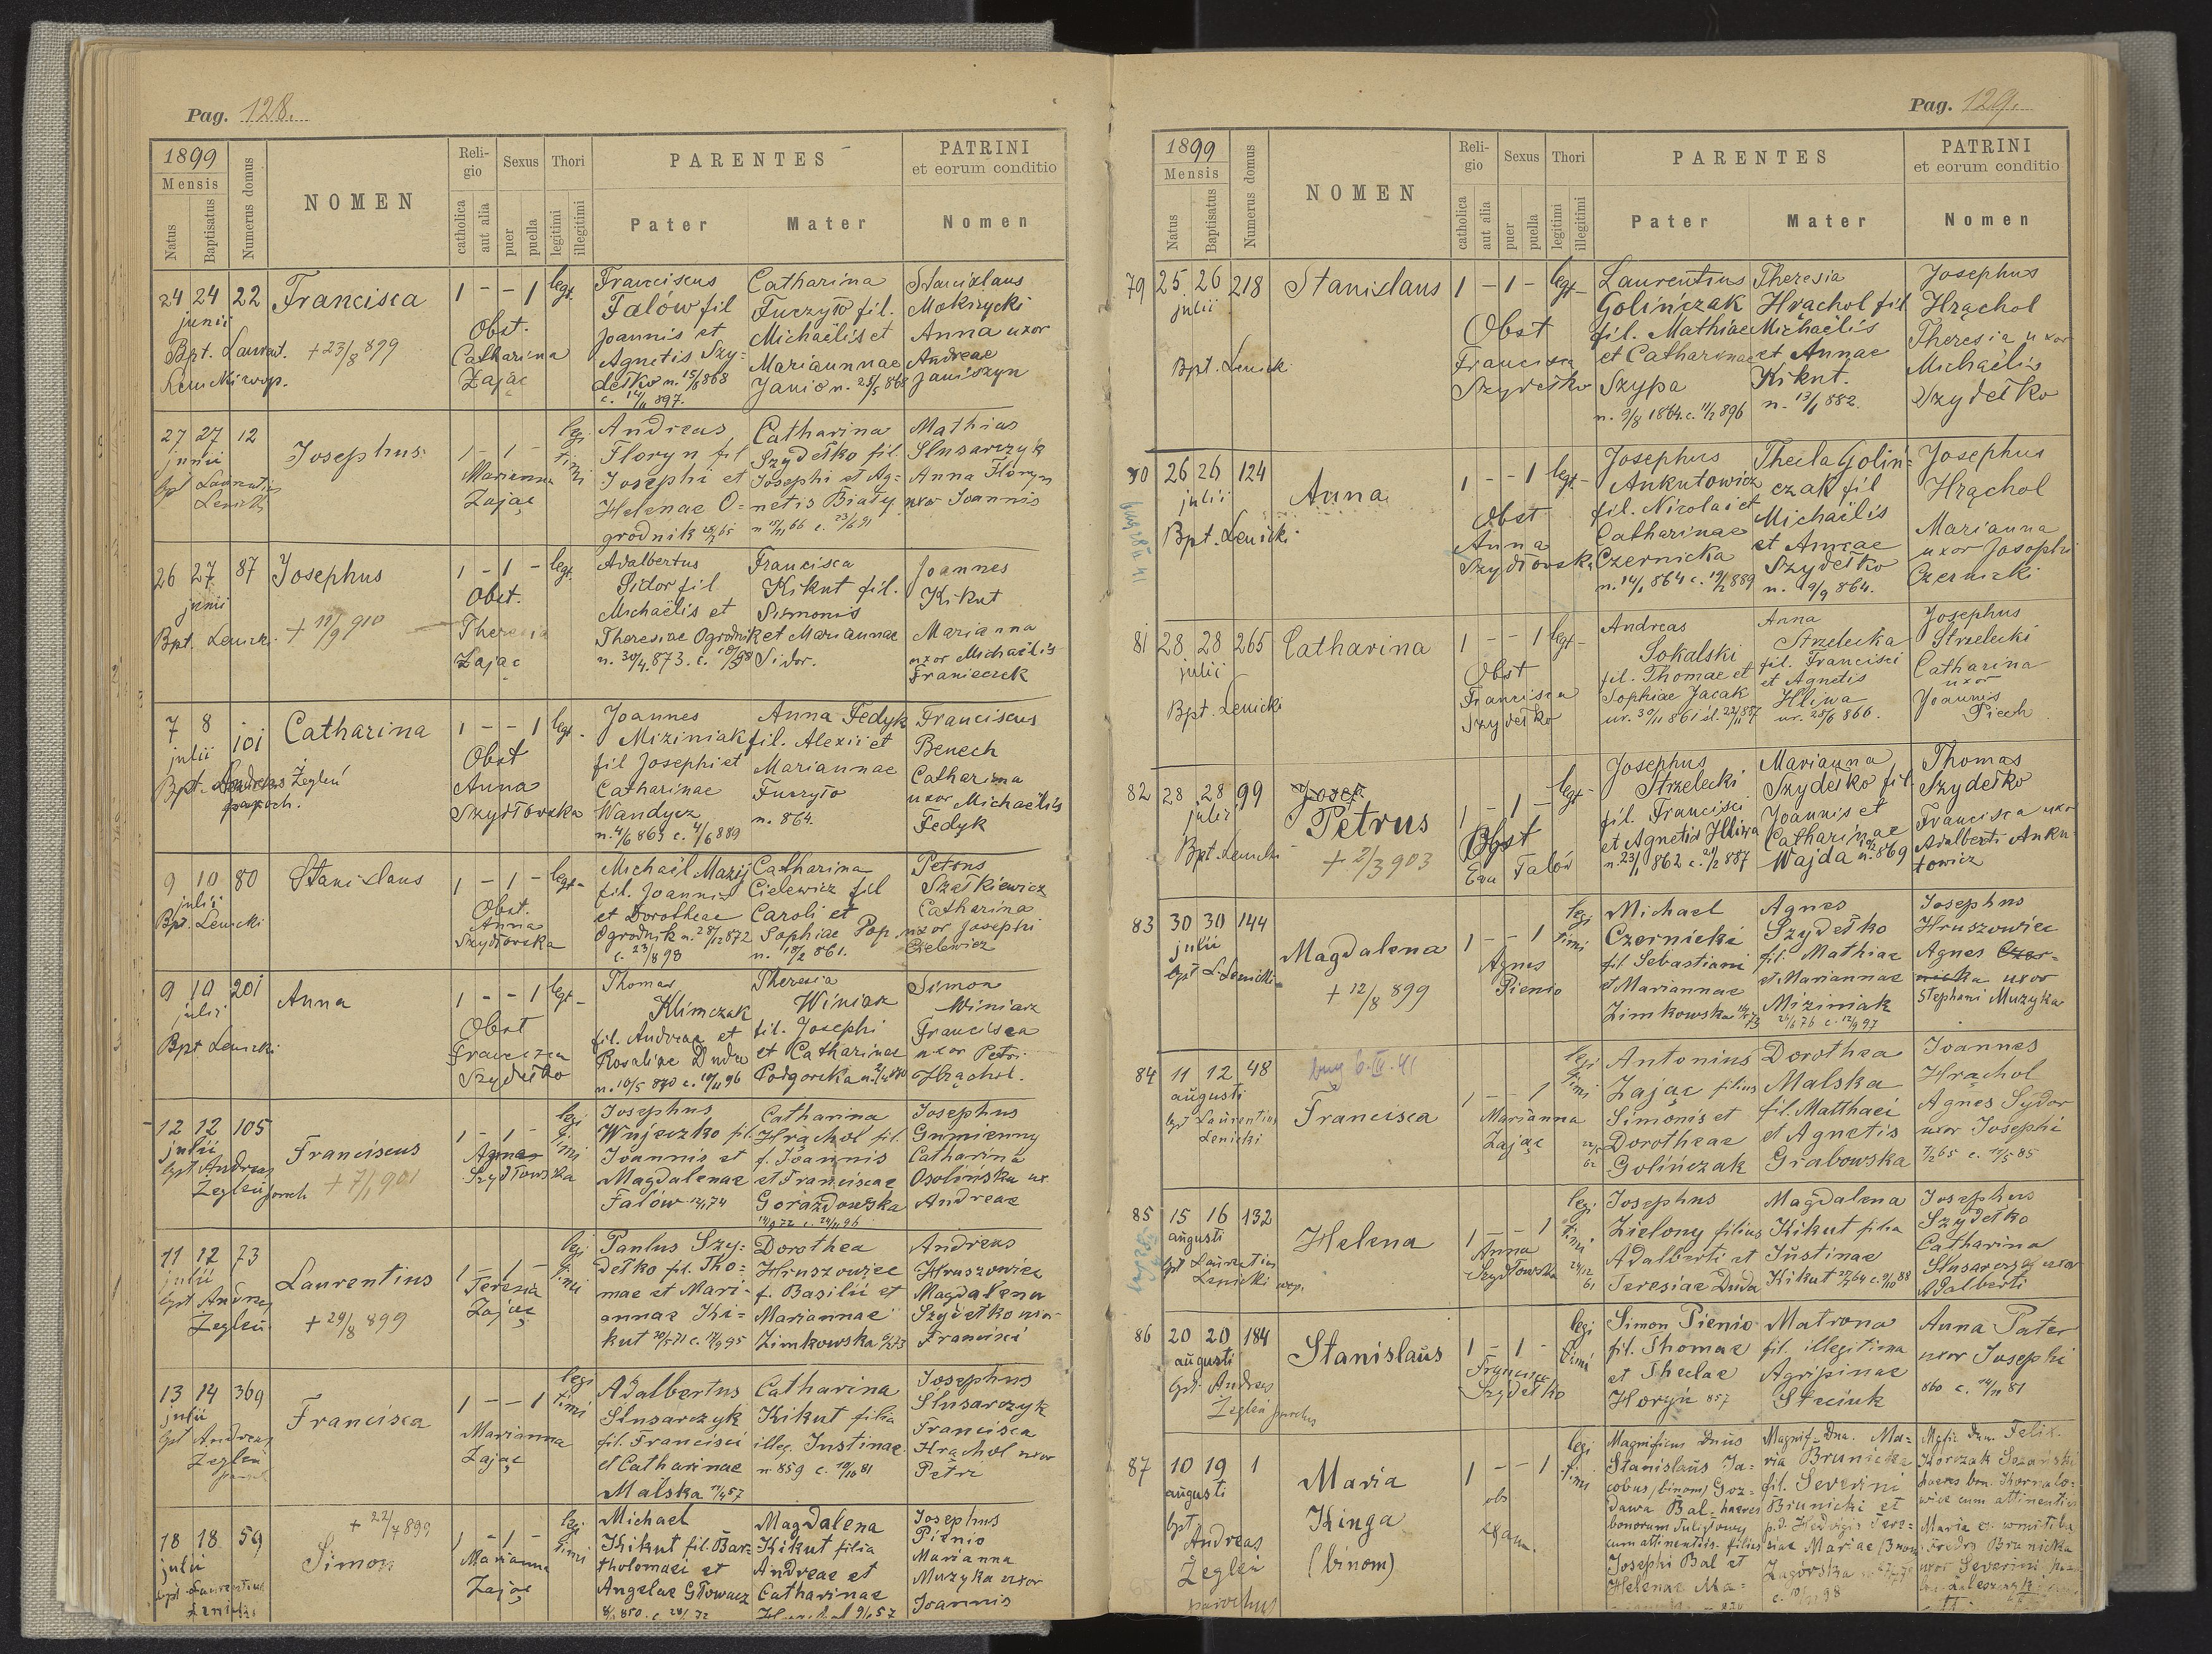 Pag. 128.
1899
Mensis
Natus
Baptisatus
Numerus domus
NOMEN
Religio
catholica
aut alia
Sexus
puer
puella
Thori
legitimi
illegitimi
PARENTES
Pater
Mater
PATRINI
et eorum conditio
Nomen
24 24 22 Francisca 1 - - 1 legt.
junii
Bpt. Laurent. + 23/8 899
Lenicki coop.
Obst.
Catharina
Zając
Franciscus
Falów fil
Joannis et
Agnetis Szy-
dełko n. 15/8 868
c. 14/11 897.
Catharina
Fuczyło fil.
Michaëlis et
Mariannae
Janio n. 25/5 868
Stanislaus
Mokrzycki
Anna uxor
Andreae
Janiszyn
27 27 12 Josephus 1 - 1 - legitimi
junii
bpt Laurentius
Lenicki
Marianna
Zając
Andreas
Floryn fil
Josephi et
Helenae O-
grodnik
Catharina
Szydełko fil.
Josephi et Ag-
netis Biały
Mathias
Slusarczyk
Anna Floryn
uxor Joannis
26 27 87 Josephus 1 - 1 - legt.
junii
Bpt. Lenicki + 18/9 910
Obst.
Theresia
Zając
Adalbertus
Sidor fil
Michaëlis et
Theresiae Ogrodnik
n. 30/4 873.
Francisca
Kikut fil.
Simonis
et Mariannae
Sidor.
Joannes
Kikut
Marianna
uxor Michaëlis
Franieczek
7 8 101 Catharina 1 - - 1 legt-
julii
Bpt. Andreas Żegleń
paroch.
Obst
Anna
Szydłowska
Joannes
Miziniak
fil Josephi et
Catharinae
Wandycz
n. 4/6 863 c. 4/6 889
Anna Fedyk
fil. Alexii et
Mariannae
Fuczyło
n. 864.
Franciscus
Benech
Catharina
uxor Michaëlis
Fedyk
9 10 80 Stanislaus 1 - 1 - legt-
julii
Bpt. Lenicki
Obst.
Anna
Szydłowska
Michaël Mazij
fil. Joannis
et Dorotheae
Ogrodnik n. 28/12 872
c. 23/8 898
Catharina
Cielewicz fil
Caroli et
Sophiae Pop
n. 18/2 861.
Petrus
Szałkiewicz
Catharina
uxor Josephi
Cielewicz
9 10 201 Anna 1 - - 1 legt-
julii
Bpt Lenicki
Obst
Francisca
Szydełko
Thomas
Klimczak
fil. Andreae et
Rosaliae Duda
n. 10/5 870 c. 10/11 96
Theresia
Winiarz
fil. Josephi
et Catharinae
Podgorska
Simon
Winiarz
Francisca
uxor Petri
Hrąchol.
12 12 105 Franciscus 1 - 1 - legitimi
julii
bpt Andreas
Żegleń paroch + 7/1 901
Agnes
Szydłowska
Josephus
Wujeczko fil.
Joannis et
Magdalenae
Falów
Catharina
Hrąchol fil.
f. Joannis
et Franciscae
Gorazdowska
Josephus
Gumienny
Catharina
Osolinska ux.
Andreae
11 12 73 Laurentius 1 - 1 - legitimi
julii
bpt Andreas
Żegleń + 29/8 899
Teresia
Zając
Paulus Szy-
dełko fil. Tho-
mae et Mari-
annae Ki-
kut
Dorothea
Hruszowiec
f. Basilii et
Mariannae
Zimkowska
Andreas
Hruszowiec
Magdalena
Szydełko uxor
Francisci
13 14 369 Francisca 1 - - 1 legitimi
julii
bpt Andreas
Żegleń
Marianna
Zając
Adalbertus
Slusarczyk
fil. Francisci
et Catharinae
Malska
Catharina
Kikut filia
illeg. Justinae
n 859 c. 19/10 81
Josephus
Slusarczyk
Francisca
Hrąchol uxor
Petri
18 18 59 Simon 1 - 1 - legitimi
julii + 22/7 899
bpt Laurentius
Lenicki
Marianna
Zając
Michael
Kikut fil. Bar-
tholomaei et
Angelae Głowacz
Magdalena
Kikut filia
Andreae et
Catharinae
Josephus
Pienio
Marianna
Muzyka uxor
Joannis
Pag. 129.
1899
Mensis
Natus
Baptisatus
Numerus domus
NOMEN
Religio
catholica
aut alia
Sexus
puer
puella
Thori
legitimi
illegitimi
PARENTES
Pater
Mater
PATRINI
et eorum conditio
Nomen
79 25 26 218 Stanislaus 1 - 1 - legt-
julii
Bpt. Lenicki
Obst
Francisca
Szydełko
Laurentius
Golińczak
fil. Mathiae
et Catharinae
Szypa
n. 9/8 1864. c. 11/2 896
Theresia
Hrąchol fil.
Michaëlis
et Annae
Kikut.
n. 13/1 882.
Josephus
Hrąchol
Theresia uxor
Michaëlis
Szydełko
26 26 124 Anna 1 - - 1 legt-
julii
Bpt. Lenicki
Obst
Anna
Szydłowska
Josephus
Ankutowicz
fil. Nicolai et
Catharinae
Czernicka
n. 14/1 864 c. 19/2 889
Thecla Goliń-
czak fil
Michaëlis
et Annae
Szydełko
n. 19/9 864.
Josephus
Hrąchol
Marianna
uxor Josephi
Czernicki
81 28 28 265 Catharina 1 - - 1 legt-
julii
Bpt. Lenicki
Obst
Francisca
Szydełko
Andreas
Sokalski
fil. Thomae et
Sophiae Jacak
nr. 30/11 861 sl. 22/11 887
Anna
Strzelecka
fil. Francisci
et Agnetis
Hliwa
nr. 28/6 866.
Josephus
Strzelecki
Catharina
uxor
Joannis
Piech
82 28 28 99 Josef. 1 - 1 - legt-
julii Petrus
Bpt. Lenicki + 2/3 903
Obst
Eva Falów
Josephus
Strzelecki
fil. Francisci
et Agnetis Hliwa
n. 23/1 862 c. 21/2 887
Marianna
Szydełko fil.
Joannis et
Catharinae
Wajda
Thomas
Szydełko
Francisca uxor
Adalberti Anku-
towicz
83 30 30 144 Magdalena 1 - - 1 legitimi
julii
bpt L. Lenicki + 12/8 899
Agnes
Pienio
Michael
Czernicki
fil Sebastiani
et Mariannae
Zimkowska
Agnes
Szydełko
fil. Mathiae
et Mariannae
Miziniak
Josephus
Hruszowiec
Agnes Czer-
nicka uxor
Stephani Muzyka
84 11 12 48 Francisca 1 - - 1 legitimi
augusti
bpt Laurentius
Lenicki
Marianna
Zając
Antonius
Zając filius
Simonis et
Dorotheae
Golińczak
Dorothea
Malska
fil. Matthaei
et Agnetis
Grabowska
Joannes
Hrąchol
Agnes Sydor
uxor Josephi
7/2 65 c. 17/5 85
85 15 16 132 Helena 1 - - 1 legitimi
augusti
bpt Laurentius
Lenicki coop.
Anna
Szydłowska
Josephus
Zielony filius
Adalberti et
Teresiae Duda
Magdalena
Kikut filia
Justinae
Kikut
Josephus
Szydełko
Catharina
Slusarczyk uxor
Adalberti
86 20 20 184 Stanislaus 1 - 1 - legitimi
augusti
bpt. Andreas
Żegleń parochus
Francisca
Szydełko
Simon Pienio
fil. Thomae
et Theclae
Horyń 857
Matrona
fil. illegitima
Agripinae
Steciuk
Anna Pater
uxor Josephi
860 c. 14/11 81
87 10 19 1 Maria 1 - - 1 legitimi
augusti Kinga
bpt (binom)
Andreas
Żegleń
parochus
obs
exam.
Magnificus Dnus
Stanislaus Ja-
cobus (binom) Goz-
dawa Bal haeres
bonorum Tuligłowy
cum attinentiis filius
Josephi Bal et
Helenae Ma-
Magnif. Dna. Ma-
ria Brunicka
fil. Severini
Brunicki et
Hedvigis Tere-
siae Mariae (3nom.)
Zagórska
Felix
Korczak
haeres bon.
cum attinentiis
Maria
Brunicka
uxor Severini